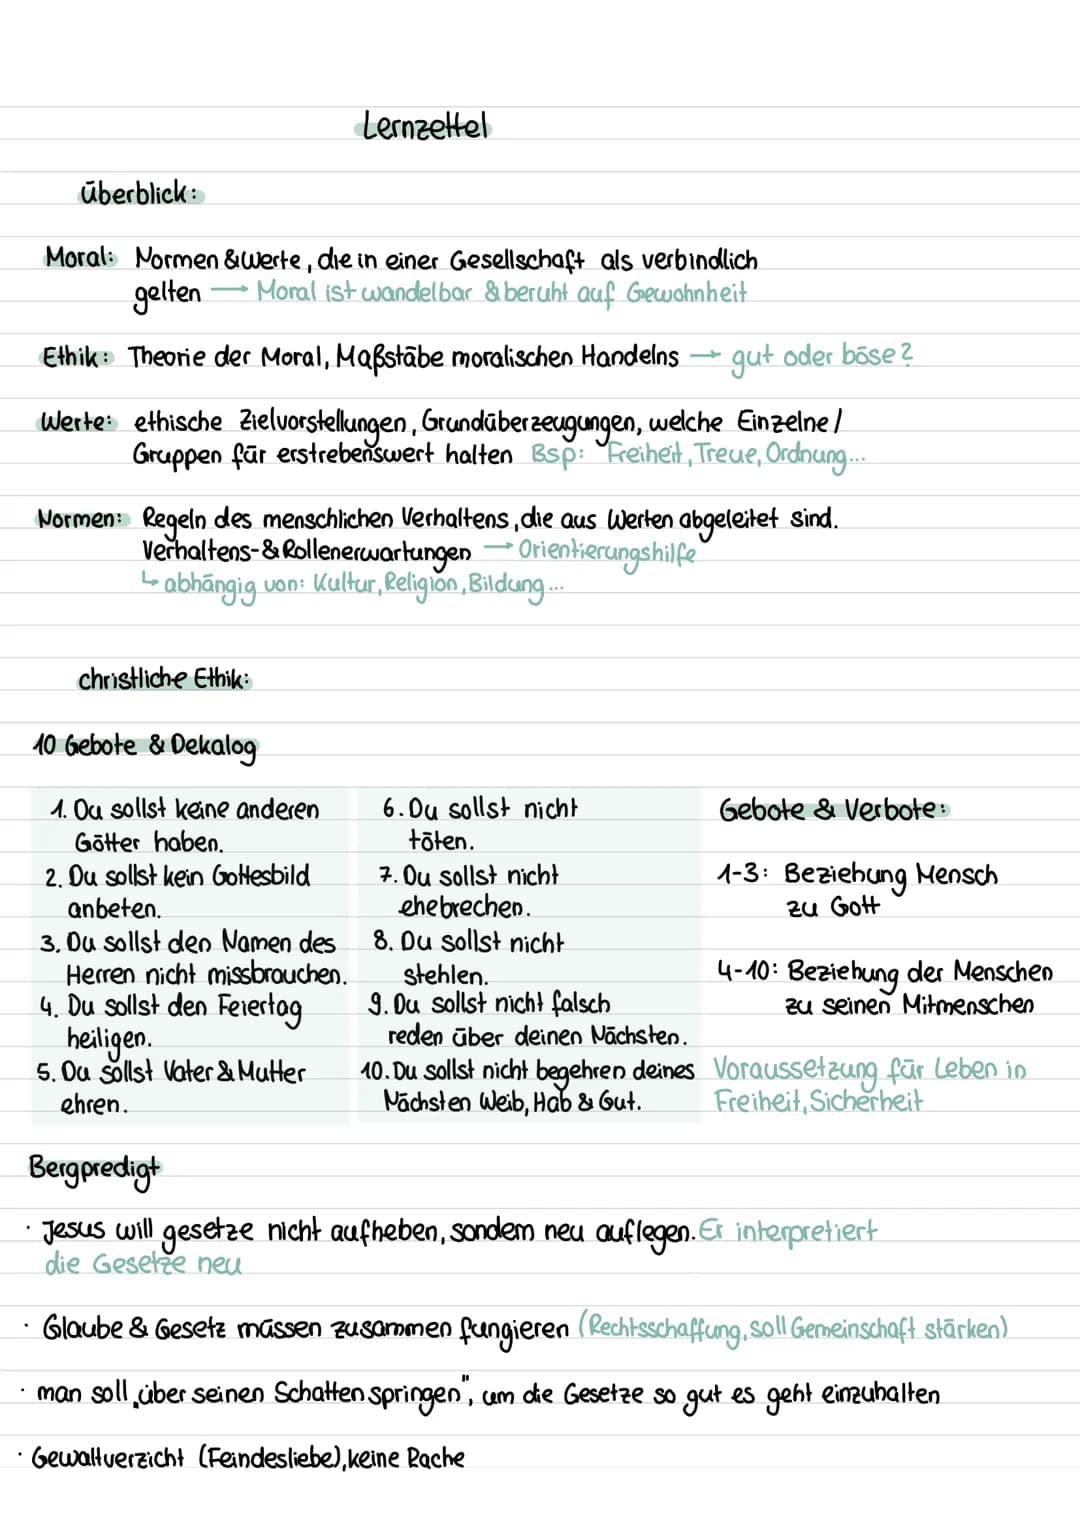 Lernzettel
überblick:
Moral: Normen & Werte, die in einer Gesellschaft als verbindlich
gelten → Moral ist wandelbar & beruht auf Gewohnheit
Ethik: Theorie der Moral, Maßstäbe moralischen Handelns → gut oder böse?
Werte: ethische Zielvorstellungen, Grundüberzeugungen, welche Einzelne/
Gruppen für erstrebenswert halten Bsp: Freiheit, Treue, Ordnung...
Normen: Regeln des menschlichen Verhaltens, die aus Werten abgeleitet sind.
Verhaltens- & Rollenerwartungen → Orientierungshilfe
↳ abhängig von: Kultur, Religion, Bildung...
christliche Ethik:
10 Gebote & Dekalog
1. Du sollst keine anderen
Götter haben.
2. Du sollst kein Gottesbild
anbeten.
3. Du sollst den Namen des
Herren nicht missbrauchen.
4. Du sollst den Feiertag
heiligen.
5. Du sollst Vater & Mutter
ehren.
6. Du sollst nicht
töten.
7. Du sollst nicht
ehebrechen.
8. Du sollst nicht
stehlen.
9. Du sollst nicht falsch
reden über deinen Nächsten.
10. Du sollst nicht begehren deines
Nächsten Weib, Hab & Gut.
Gebote & Verbote:
1-3: Beziehung Mensch
zu Gott
4-10: Beziehung der Menschen
zu seinen Mitmenschen
Voraussetzung für Leben in
Freiheit, Sicherheit
Bergpredigt
· Jesus will gesetze nicht aufheben, sondern neu auflegen. Er interpretiert
die Gesetze neu
· Glaube & Gesetz müssen zusammen fungieren (Rechtsschaffung, soll Gemeinschaft stärken)
· man soll „über seinen Schatten springen", um die Gesetze so gut es geht einzuhalten
· Gewaltverzicht (Feindesliebe), keine Rache